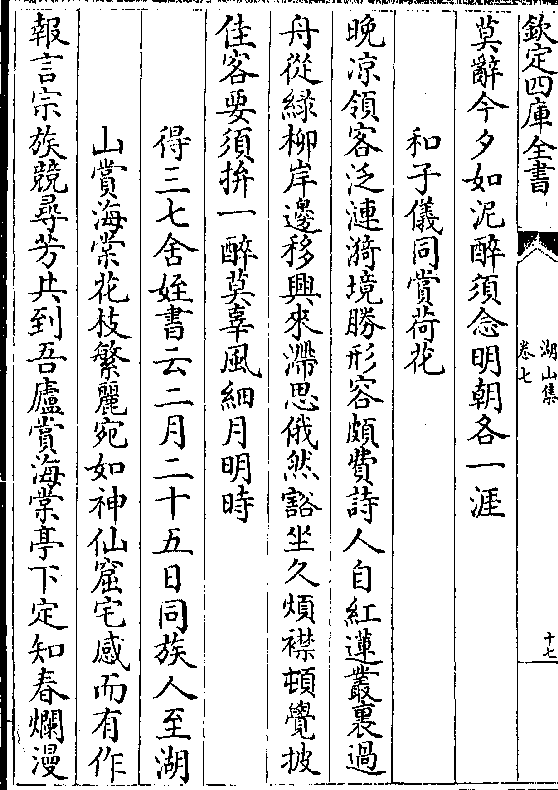 欽定四庫全書
湖山集
卷七
十七
莫辭今夕如泥醉須念明朝各一涯
和子儀同賞荷花
晚涼領客泛漣漪境勝形容頗費詩人自紅蓮叢裏過
舟從緑栁岸邊移興來滯思俄然豁坐久煩襟頓覺披
佳客要須拚一醉莫辜風細月明時
得三七舍姪書云二月二十五日同族人至湖
山賞海棠花枝繁麗宛如神仙窟宅感而有作
報言宗族競尋芳共到吾廬賞海棠亭下定知春爛漫